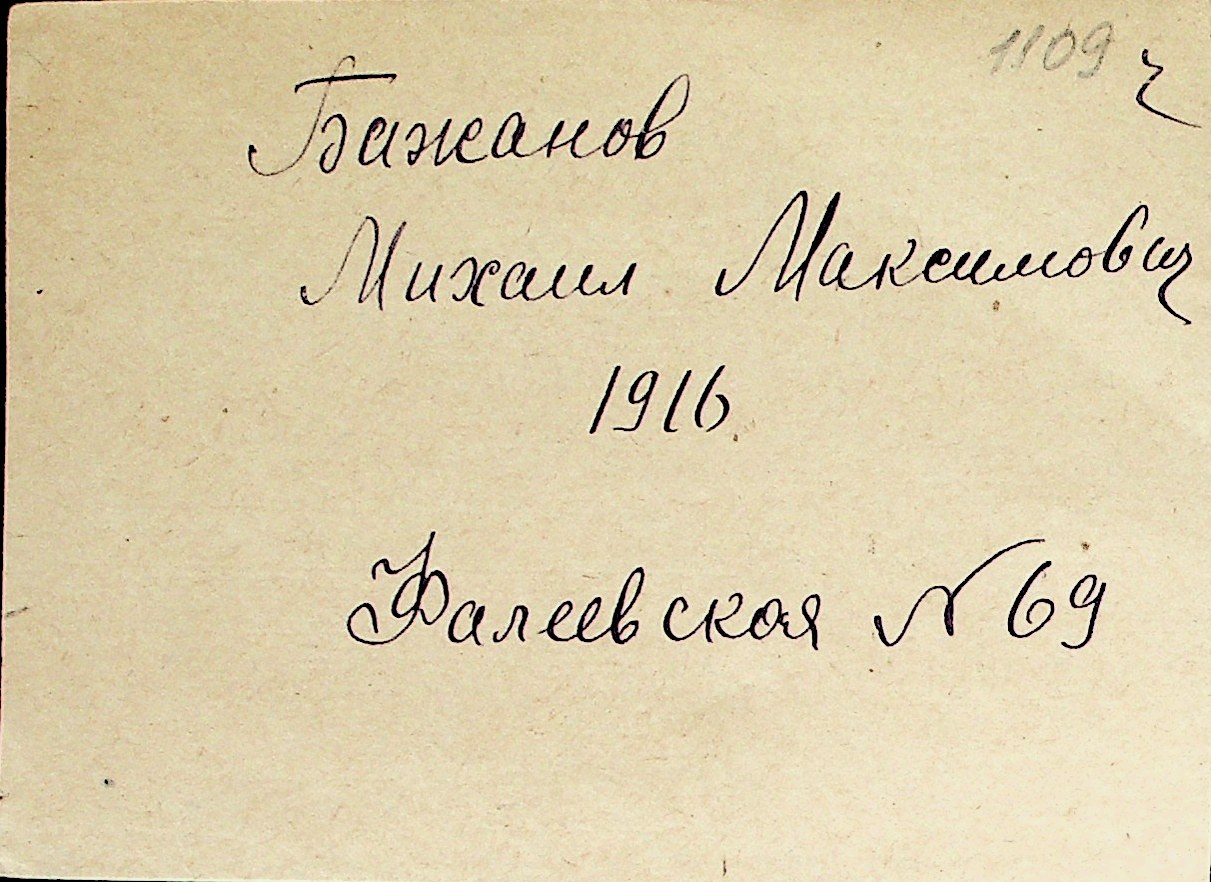 1109 ч
Бажанов
Михаил Максимович
1916
Фалеевская N 69